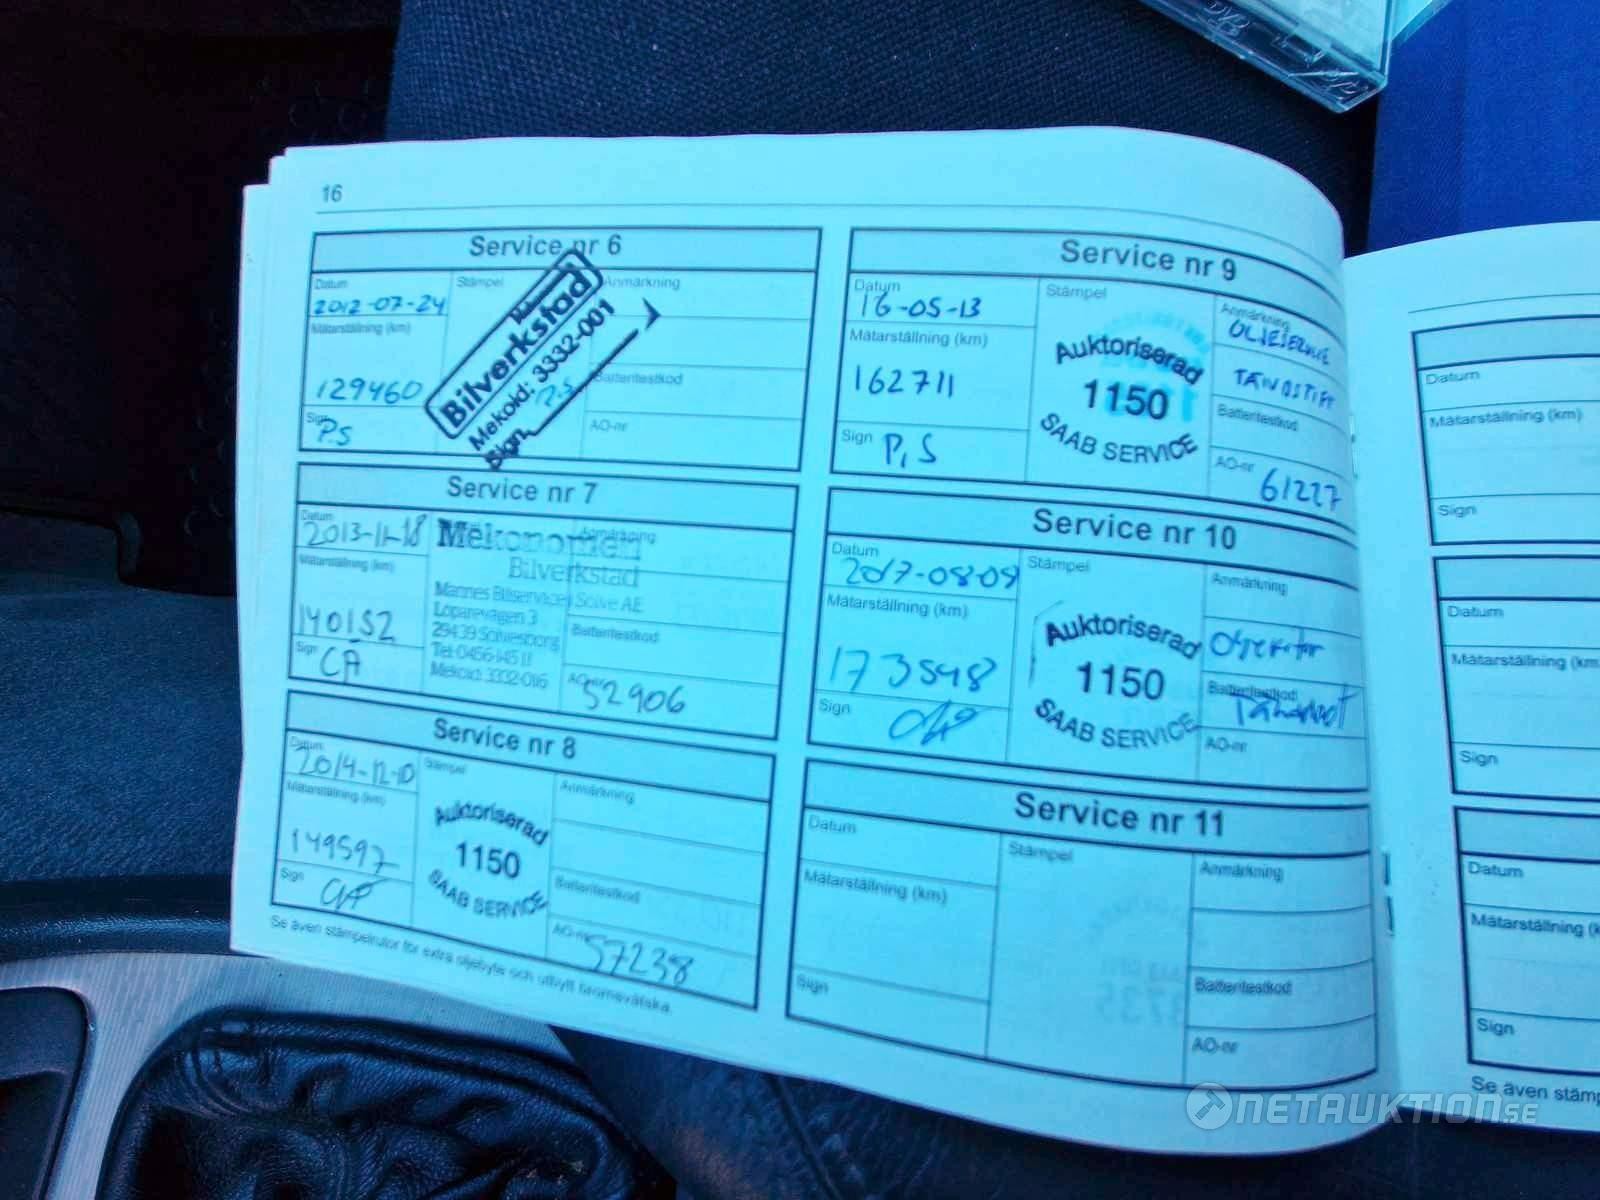 16
Service nr 6
Datum
2012-07-24
Mätarställning (km)
129460
Sign
PS
Stämpel
Bilverkstad
Mekoid: 3332-001
Sign.
Anmärkning
Batteritestkod
AO-nr
Service nr 7
Datum
2013-11-18
Mätarställning (km)
140152
Sign
CA
Mekonomen
Bilverkstad
Mannes Bilservice i Sölve AB
Loparevägen 3
29439 Sölvesborg
Tel: 0456-145 11
Mekoid: 3332-016
Anmärkning
Batteritestkod
AO-nr
52906
Service nr 8
Datum
2014-12-10
Mätarställning (km)
149597
Sign
Stämpel
Auktoriserad
1150
SAAB SERVICE
Anmärkning
Batteritestkod
AO-nr
57238
Se även stämpelrutor för extra oljebyte och utbytt bromsvätska.
Service nr 9
Datum
16-05-13
Mätarställning (km)
162711
Sign
P,S
Stämpel
Auktoriserad
1150
SAAB SERVICE
Anmärkning
OLJESERVICE
TÄNDSTIFT
Batteritestkod
AO-nr
61227
Service nr 10
Datum
2017-08-09
Mätarställning (km)
173548
Sign
Stämpel
Auktoriserad
1150
SAAB SERVICE
Anmärkning
Batteritestkod
AO-nr
Service nr 11
Datum
Mätarställning (km)
Sign
Stämpel
Anmärkning
Batteritestkod
AO-nr
Datum
Mätarställning (km)
Sign
Datum
Mätarställning (km
Sign
Datum
Mätarställning (k
Sign
Se även stämp
NETAUKTION.SE